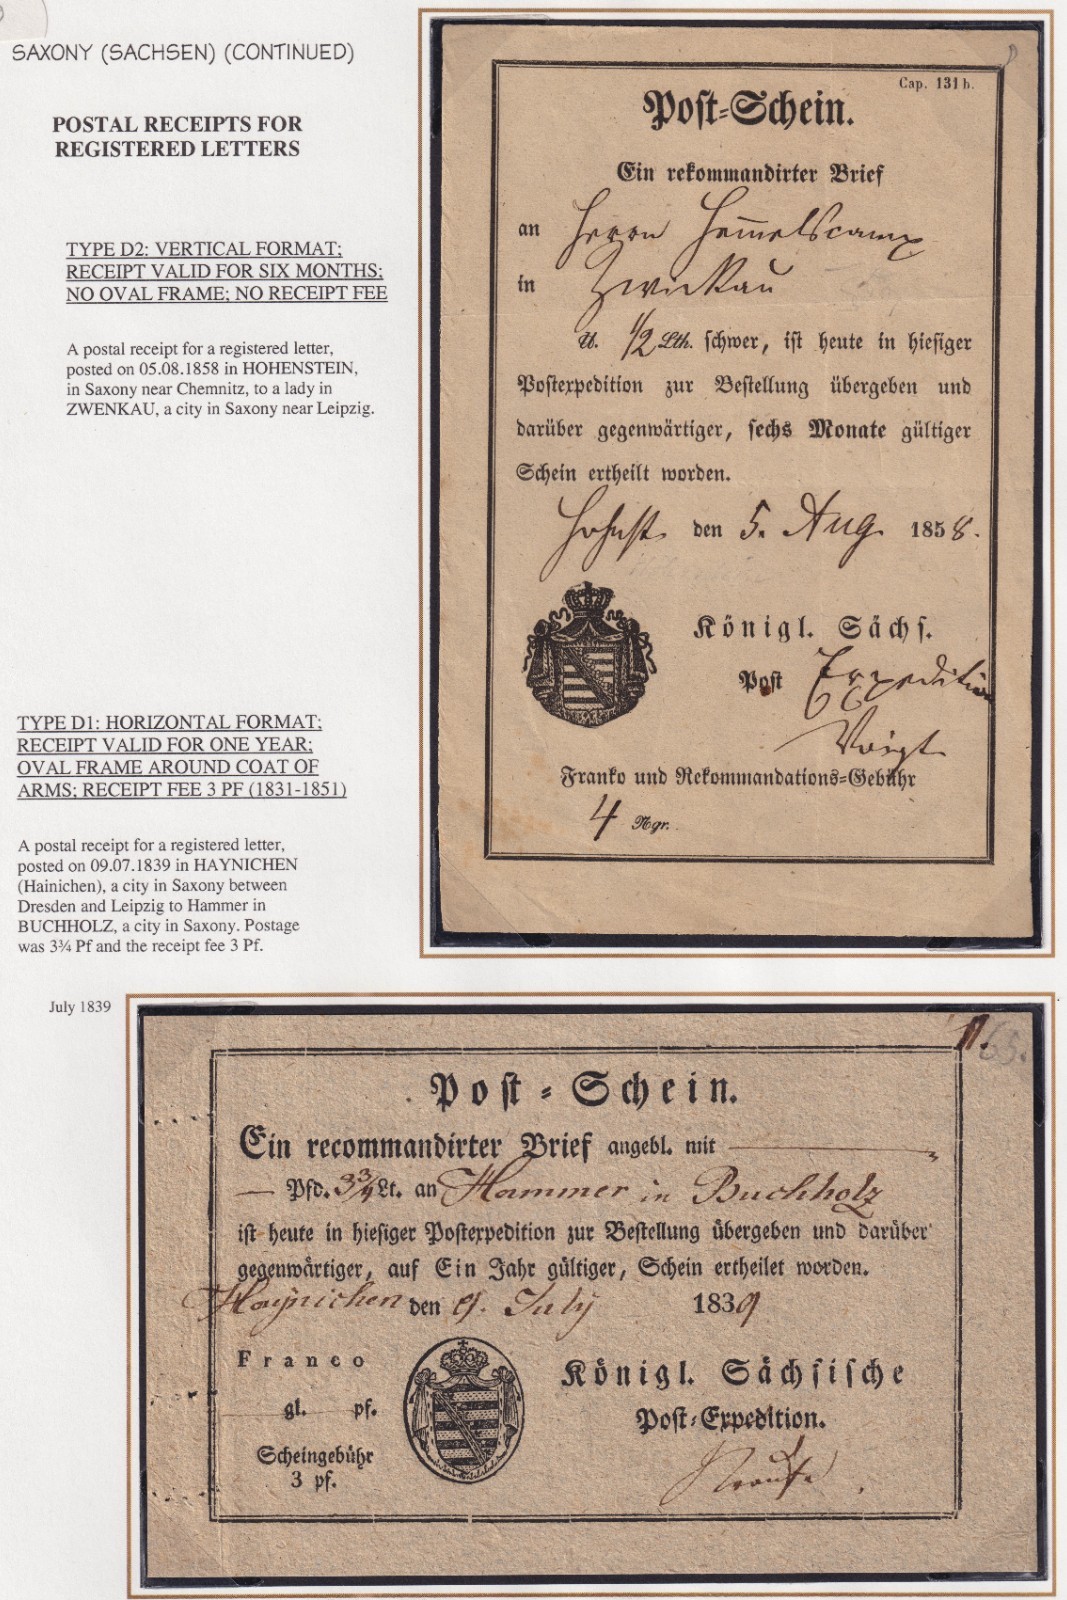 SAXONY (SACHSEN) (CONTINUED)
POSTAL RECEIPTS FOR
REGISTERED LETTERS
TYPE D2: VERTICAL FORMAT;
RECEIPT VALID FOR SIX MONTHS;
NO OVAL FRAME; NO RECEIPT FEE
A postal receipt for a registered letter,
posted on 05.08.1858 in HOHENSTEIN,
in Saxony near Chemnitz, to a lady in
ZWENKAU, a city in Saxony near Leipzig.
Cap. 131 h.
Post-Schein.
Ein rekommandirter Brief
an Herrn
in Zwickau
U. 1/2 Lth. schwer, ist heute in hiesiger
Postexpedition zur Bestellung übergeben und
darüber gegenwärtiger, sechs Monate gültiger
Schein ertheilt worden.
Hohnst den 5. Aug. 1858.
Königl. Sächs.
Post Expedition
Voigt
Franko und Rekommandations-Gebühr
4 Ngr.
TYPE D1: HORIZONTAL FORMAT;
RECEIPT VALID FOR ONE YEAR;
OVAL FRAME AROUND COAT OF
ARMS; RECEIPT FEE 3 PF (1831-1851)
A postal receipt for a registered letter,
posted on 09.07.1839 in HAYNICHEN
(Hainichen), a city in Saxony between
Dresden and Leipzig to Hammer in
BUCHHOLZ, a city in Saxony. Postage
was 3¾ Pf and the receipt fee 3 Pf.
July 1839
11. 65.
Post-Schein.
Ein recommandirter Brief angebl. mit
Pfd. 3¾ Lt. an Hammer in Buchholz
ist heute in hiesiger Postexpedition zur Bestellung übergeben und darüber
gegenwärtiger, auf Ein Jahr gültiger, Schein ertheilet worden.
Haynichen den 9. July 1839
Franco
gl. pf.
Scheingebühr
3 pf.
Königl. Sächsische
Post-Expedition.